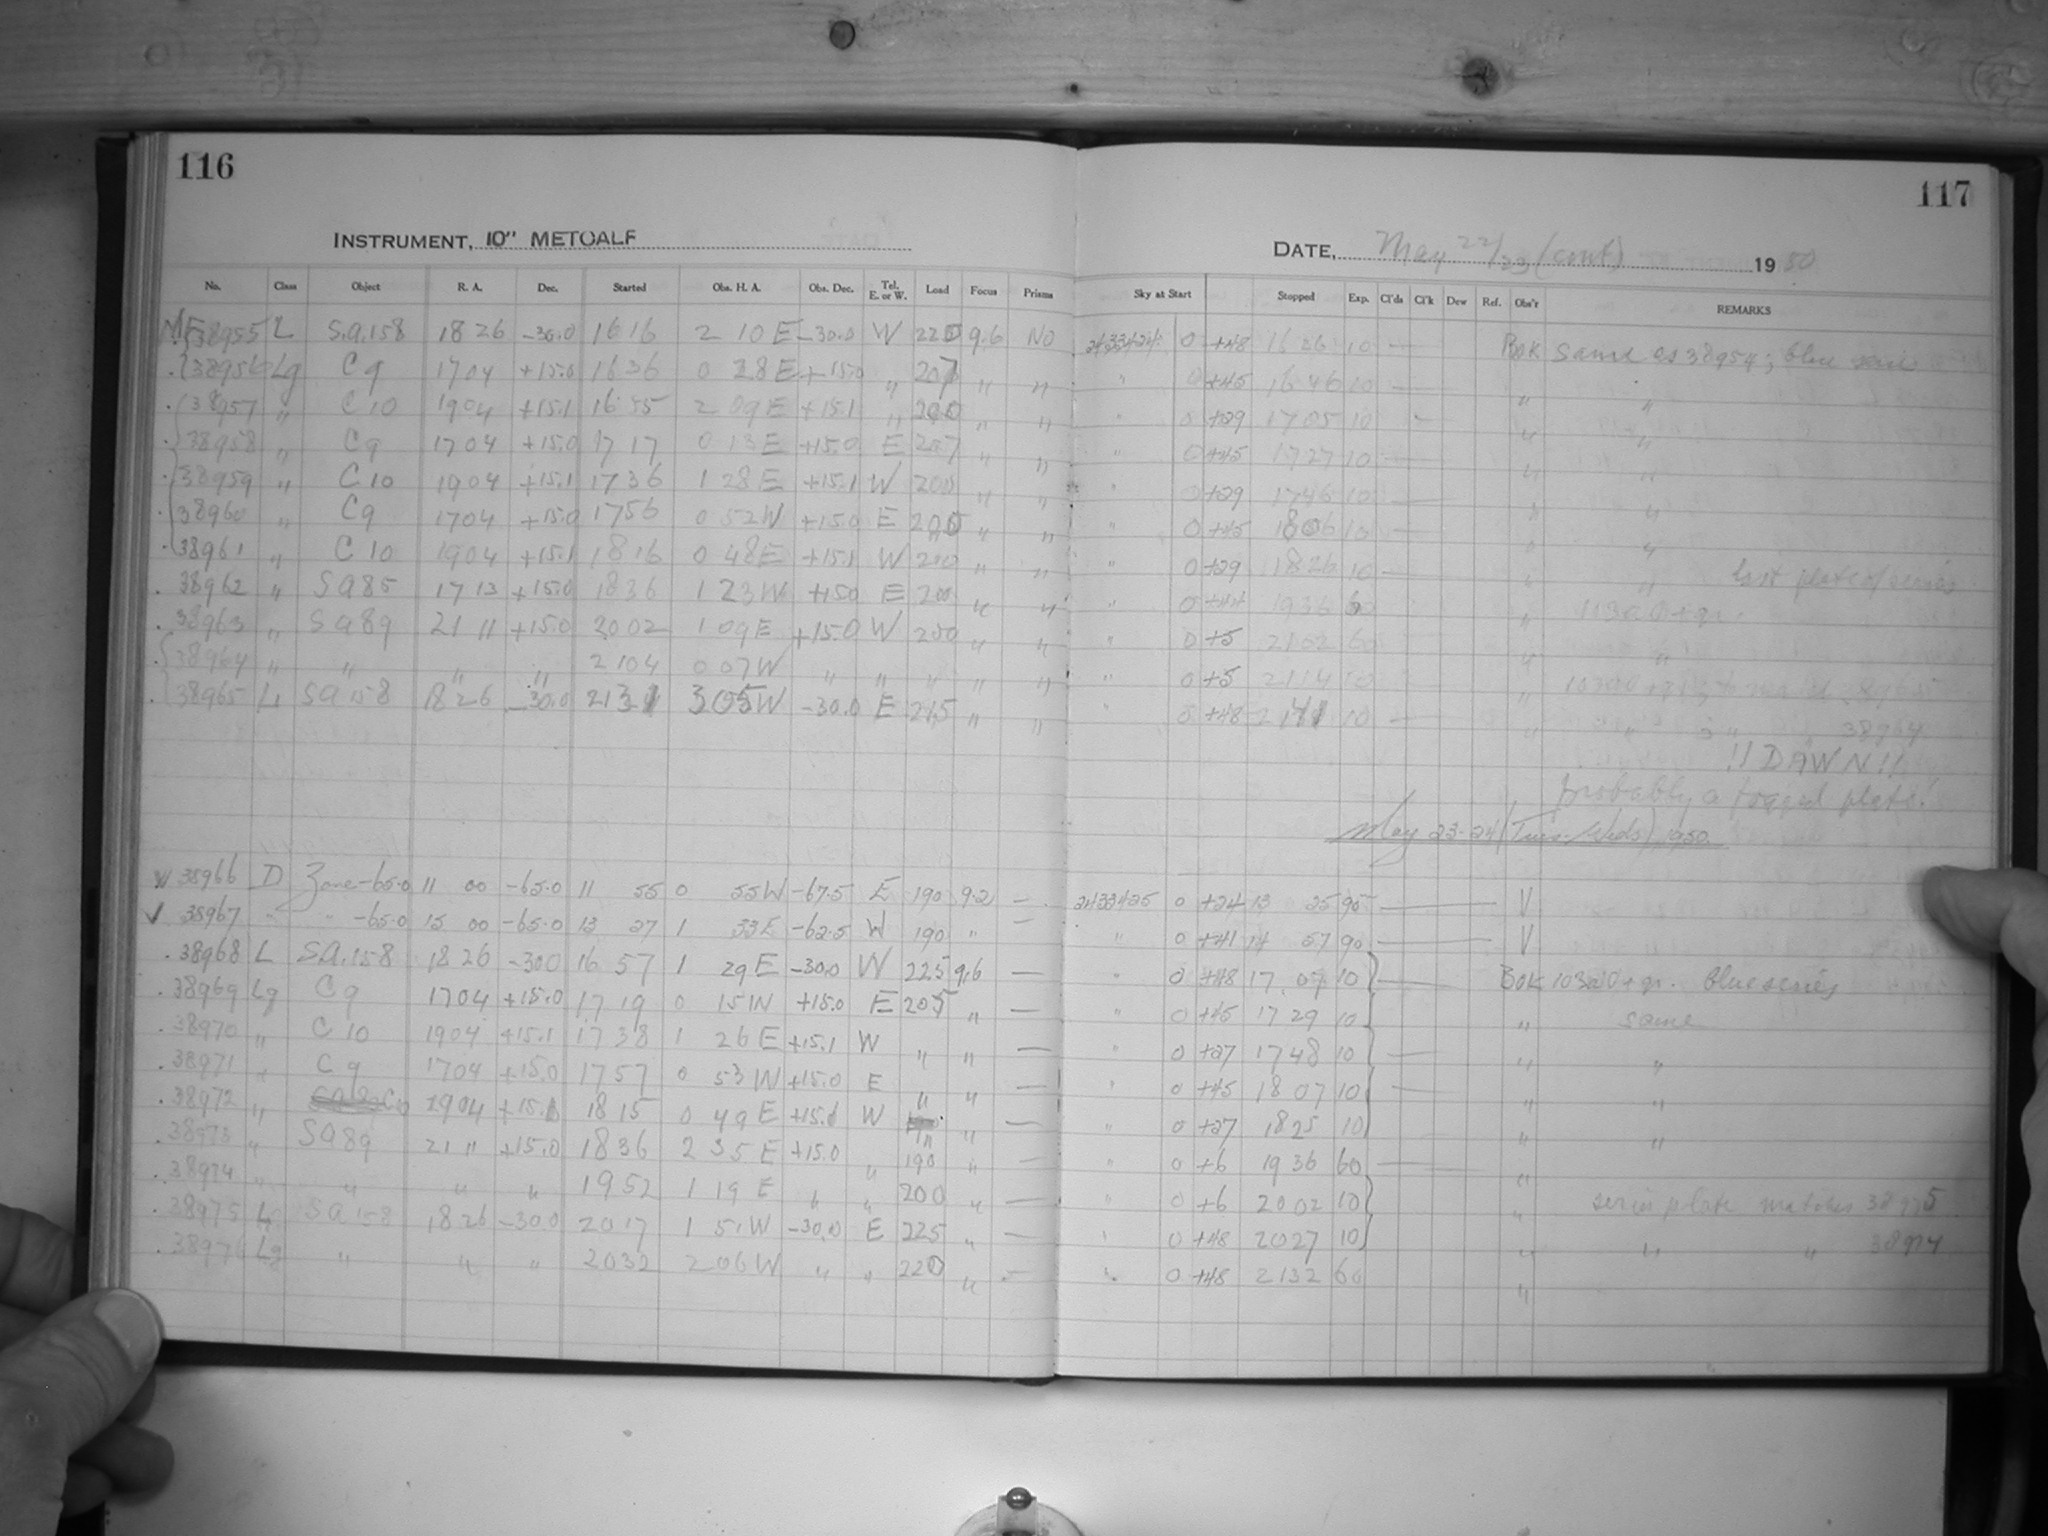 116
INSTRUMENT, 10" METCALF
No. Class Object R. A. Dec. Started Obs. H. A. Obs. Dec. Tel. E. or W. Load Focus Prisms
38955 L S.A.158 18 26 -30.0 16 16 2 10 E -30.0 W 220 9.6 No
38956 Lg C9 17 04 +15.0 16 36 0 28 E +15.0 " 207 " "
38957 " C10 19 04 +15.1 16 55 2 09 E +15.1 " 200 " "
38958 " C9 17 04 +15.0 17 17 0 13 E +15.0 E 207 " "
38959 " C10 19 04 +15.1 17 36 1 28 E +15.1 W 200 " "
38960 " C9 17 04 +15.0 17 56 0 52 W +15.0 E 205 " "
38961 " C10 19 04 +15.1 18 16 0 48 E +15.1 W 200 " "
38962 " SA85 17 13 +15.0 18 36 1 23 W +15.0 E 200 " "
38963 " SA89 21 11 +15.0 20 02 1 09 E +15.0 W 200 " "
38964 " " " " 21 04 0 07 W " " " " "
38965 L SA158 18 26 -30.0 21 31 3 05 W -30.0 E 215 " "
38966 D Zone -65.0 11 00 -65.0 11 55 0 55 W -67.5 E 190 9.2 —
✓ 38967 " " -65.0 15 00 -65.0 13 27 1 33 E -62.5 W 190 " —
38968 L SA.158 18 26 -30.0 16 57 1 29 E -30.0 W 225 9.6 —
38969 Lg C9 17 04 +15.0 17 19 0 15 W +15.0 E 205 " —
38970 " C10 19 04 +15.1 17 38 1 26 E +15.1 W " " —
38971 " C9 17 04 +15.0 17 57 0 53 W +15.0 E " " —
38972 " C10 19 04 +15.1 18 15 0 49 E +15.1 W " " —
38973 " SA89 21 11 +15.0 18 36 2 35 E +15.0 " 190 " —
38974 " " " " 19 52 1 19 E " " 200 " —
38975 L SA158 18 26 -30.0 20 17 1 51 W -30.0 E 225 " —
38976 Lg " " " 20 32 2 06 W " " 220 " —
117
DATE, May 22/23 (cont) 1950
Sky at Start Stopped Exp. Cl'ds Cl'k Dew Ref. Obs'r REMARKS
2433424 0 +48 16 26 10 — Bok Same as 38954; blue series
" 0 +45 16 46 10 — " "
" 0 +29 17 05 10 — " "
" 0 +45 17 27 10 — " "
" 0 +29 17 46 10 — " "
" 0 +45 18 06 10 — " "
" 0 +29 18 26 10 — " " last plate of series
" 0 +44 19 36 60 "
" 0 +5 21 02 60 " "
" 0 +5 21 14 10 "
" 0 +48 21 41 10 — " " 38964
!! DAWN !!
probably a fogged plate!
May 23-24 (Tues-Weds), 1950
2433425 0 +24 13 25 90 — V
" 0 +41 14 57 90 — V
" 0 +48 17 07 10 — Bok 103aO+gr. blue series
" 0 +45 17 29 10 " same
" 0 +27 17 48 10 — " "
" 0 +45 18 07 10 — " "
" 0 +27 18 25 10 " "
" 0 +6 19 36 60 — "
" 0 +6 20 02 10 " series plate matches 38975
" 0 +48 20 27 10 " " " 38974
" 0 +48 21 32 60 "